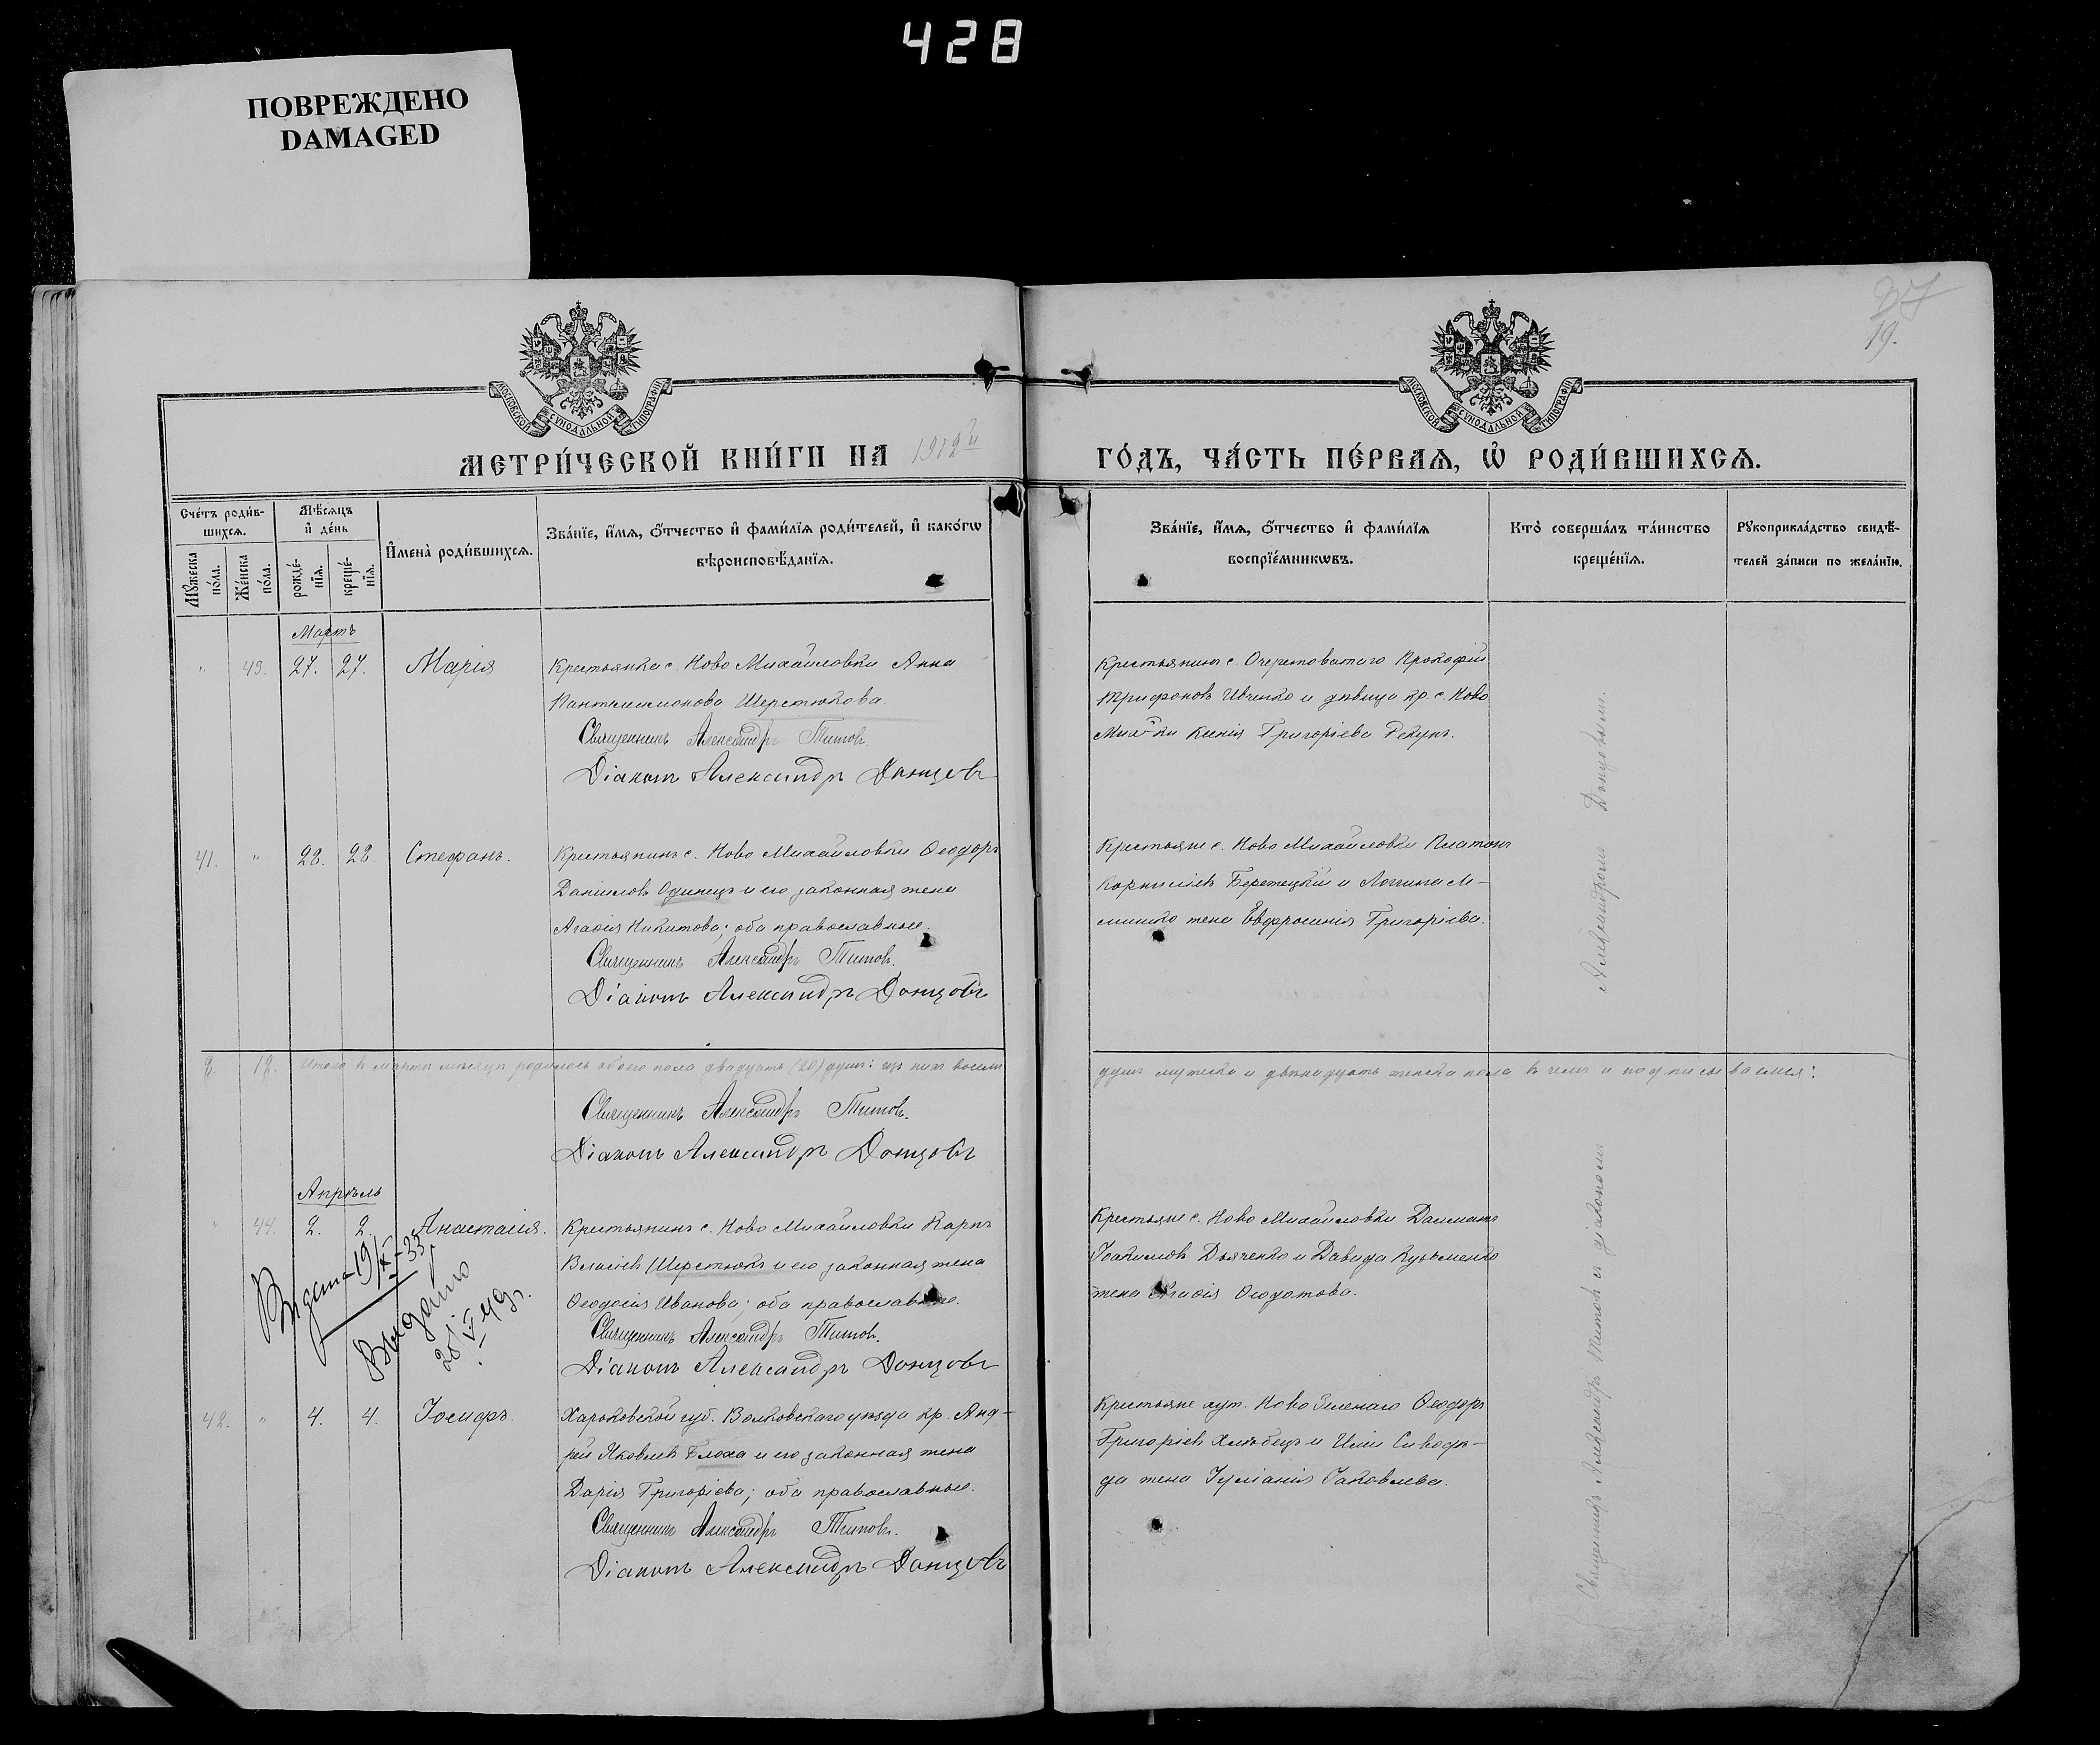 428
ПОВРЕЖДЕНО
DAMAGED
27
19.
МОСКОВСКОЙ СУНОДАЛЬНОЙ ТИПОГРАФІИ
МОСКОВСКОЙ СУНОДАЛЬНОЙ ТИПОГРАФІИ
МЕТРИ́ЧЕСКОЙ КНИ́ГИ НА 1912й ГО́ДЪ, ЧА́СТЬ ПЕ́РВАѦ, Ѡ҆ РОДИ́ВШИХСѦ.
Сче́тъ роди́в-
шихсѧ.
Мꙋ́жеска по́ла.
Же́нска по́ла.
Мѣ́сѧцъ
и҆ де́нь
рожде́-
нїѧ.
креще́-
нїѧ.
И҆мена̀ роди́вшихсѧ.
Зва́нїе, и҆́мѧ, ѻ҆́тчество и҆ фами́лїѧ роди́телей, и҆ како́гѡ
вѣроисповѣ́данїѧ.
Зва́нїе, и҆́мѧ, ѻ҆́тчество и҆ фами́лїѧ
воспрїе́мникѡвъ.
Кто̀ соверша́лъ та́инство
креще́нїѧ.
Рꙋкоприкла́дство свидѣ́-
телей за́писи по жела́нїю.
Мартъ
" 43. 27. 27. Марія
Крестьянка с. Ново Михайловки Анна
Пантелеимонова Шерстюкова.
Священникъ Александръ Титовъ.
Діаконъ Александръ Донцовъ
Крестьянинъ с. Очеретоватаго Прокофій
Трифоновъ Ивченко и дѣвица кр. с. Ново
Мих-ки Ксенія Григоріева Рекунъ.
41. " 28. 28. Стефанъ.
Крестьянинъ с. Ново Михайловки Ѳеодоръ
Даніиловъ Одинецъ и его законная жена
Агаѳія Никитова; оба православные.
Священникъ Александръ Титовъ.
Діаконъ Александръ Донцовъ
Крестьяне с. Ново Михайловки Платонъ
Корниліевъ Бережецкій и Логгина
жена Евфросинія Григоріева.
8. 12. Итого въ мартѣ мѣсяцѣ родилось обоего пола двадцать (20) душъ: изъ нихъ восемь
душъ мужеска и двѣнадцать женска пола въ чемъ и подписываемся:
Священникъ Александръ Титовъ.
Діаконъ Александръ Донцовъ
Апрѣль
" 44. 2. 2. Анастасія.
Крестьянинъ с. Ново Михайловки Карпъ
Власіевъ Шерстюкъ и его законная жена
Ѳеодосія Иванова; оба православные.
Священникъ Александръ Титовъ.
Діаконъ Александръ Донцовъ
Крестьяне с. Ново Михайловки Далматъ
Іоакимовъ Дьяченко и Давида Кузьменко
жена Агаѳія Ѳеодотова.
19/XI-33
Выдано
28/VI-49г.
42. " 4. 4. Іосифъ.
Харьковской губ. Валковскаго уѣзда кр. Анд-
рей Яковлевъ Блоха и его законная жена
Дарія Григоріева; оба православные.
Священникъ Александръ Титовъ.
Діаконъ Александръ Донцовъ
Крестьяне хут. Ново Зеленаго Ѳеодоръ
Григоріевъ Хлѣбецъ и Иліи Сиводе-
да жена Іуліанія Іаковлева.
Священникъ Александръ Титовъ съ діакономъ
Александромъ Донцовымъ.